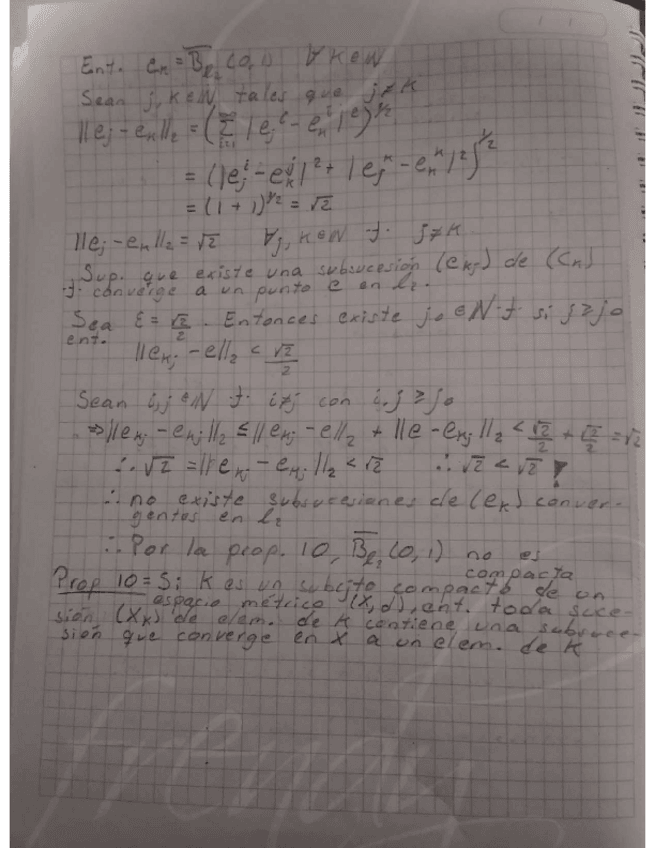 Ent. e_k = B̅_{l_2} (0,1) ∀ k∈N
Sean j, k∈N tales que j≠k
||e_j - e_k||_2 = (∑_{i=1}^∞ |e_j^i - e_k^i|^2)^{1/2}
= (|e_j^j - e_k^j|^2 + |e_j^k - e_k^k|^2)^{1/2}
= (1 + 1)^{1/2} = √2
||e_j - e_k||_2 = √2 ∀j, k∈N ·)· j≠k
Sup. que existe una subsucesión (e_{k_j}) de (e_k)
·)· converge a un punto e en l_2.
Sea ε = √2/2 . Entonces existe j_0 ∈ N ·)· si j ≥ j_0
ent.
||e_{k_j} - e||_2 < √2/2
Sean i, j ∈ N ·)· i≠j con i, j ≥ j_0
⇒ ||e_{k_i} - e_{k_j}||_2 ≤ ||e_{k_i} - e||_2 + ||e - e_{k_j}||_2 < √2/2 + √2/2 = √2
∴ √2 = ||e_{k_i} - e_{k_j}||_2 < √2 ∴ √2 < √2 !
∴ no existe subsucesiones de (e_k) conver-
gentes en l_2
∴ Por la prop. 10, B̅_{l_2} (0,1) no es
compacta
Prop 10 = Si K es un subcjto compacto de un
espacio métrico (X,d), ent. toda suce-
sión (X_k) de elem. de K contiene una subsuce-
sión que converge en X a un elem. de K